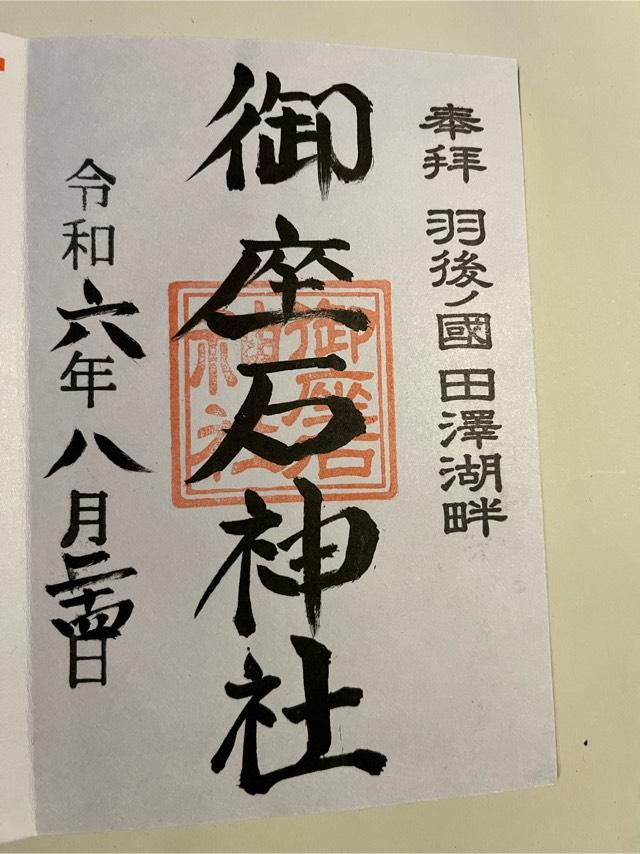 奉拝 羽後ノ國 田澤湖畔
御座石神社
御座石
神社
令和六年八月二十四日